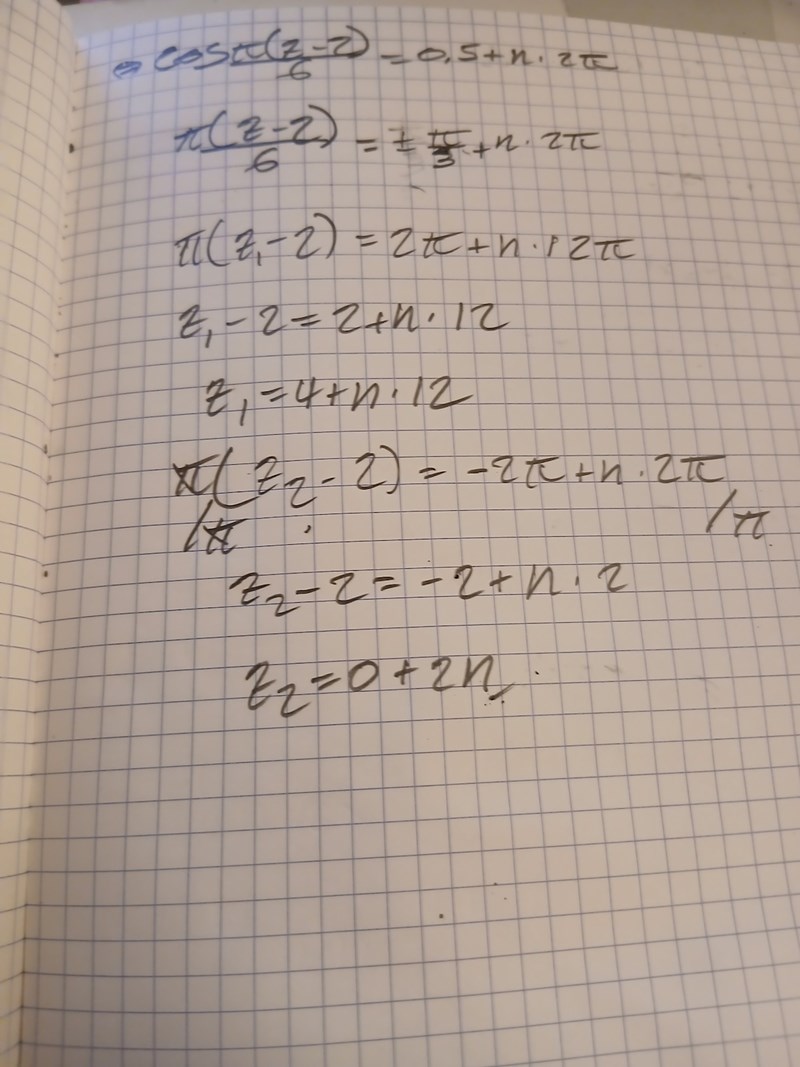 cos π(z-2)/6 = 0,5+n·2π
π(z-2)/6 = ± π/3 + n·2π
π(z₁-2) = 2π+n·12π
z₁-2=2+n·12
z₁=4+n·12
π(z₂-2) = -2π+n·2π
/π /π
z₂-2=-2+n·2
z₂=0+2n